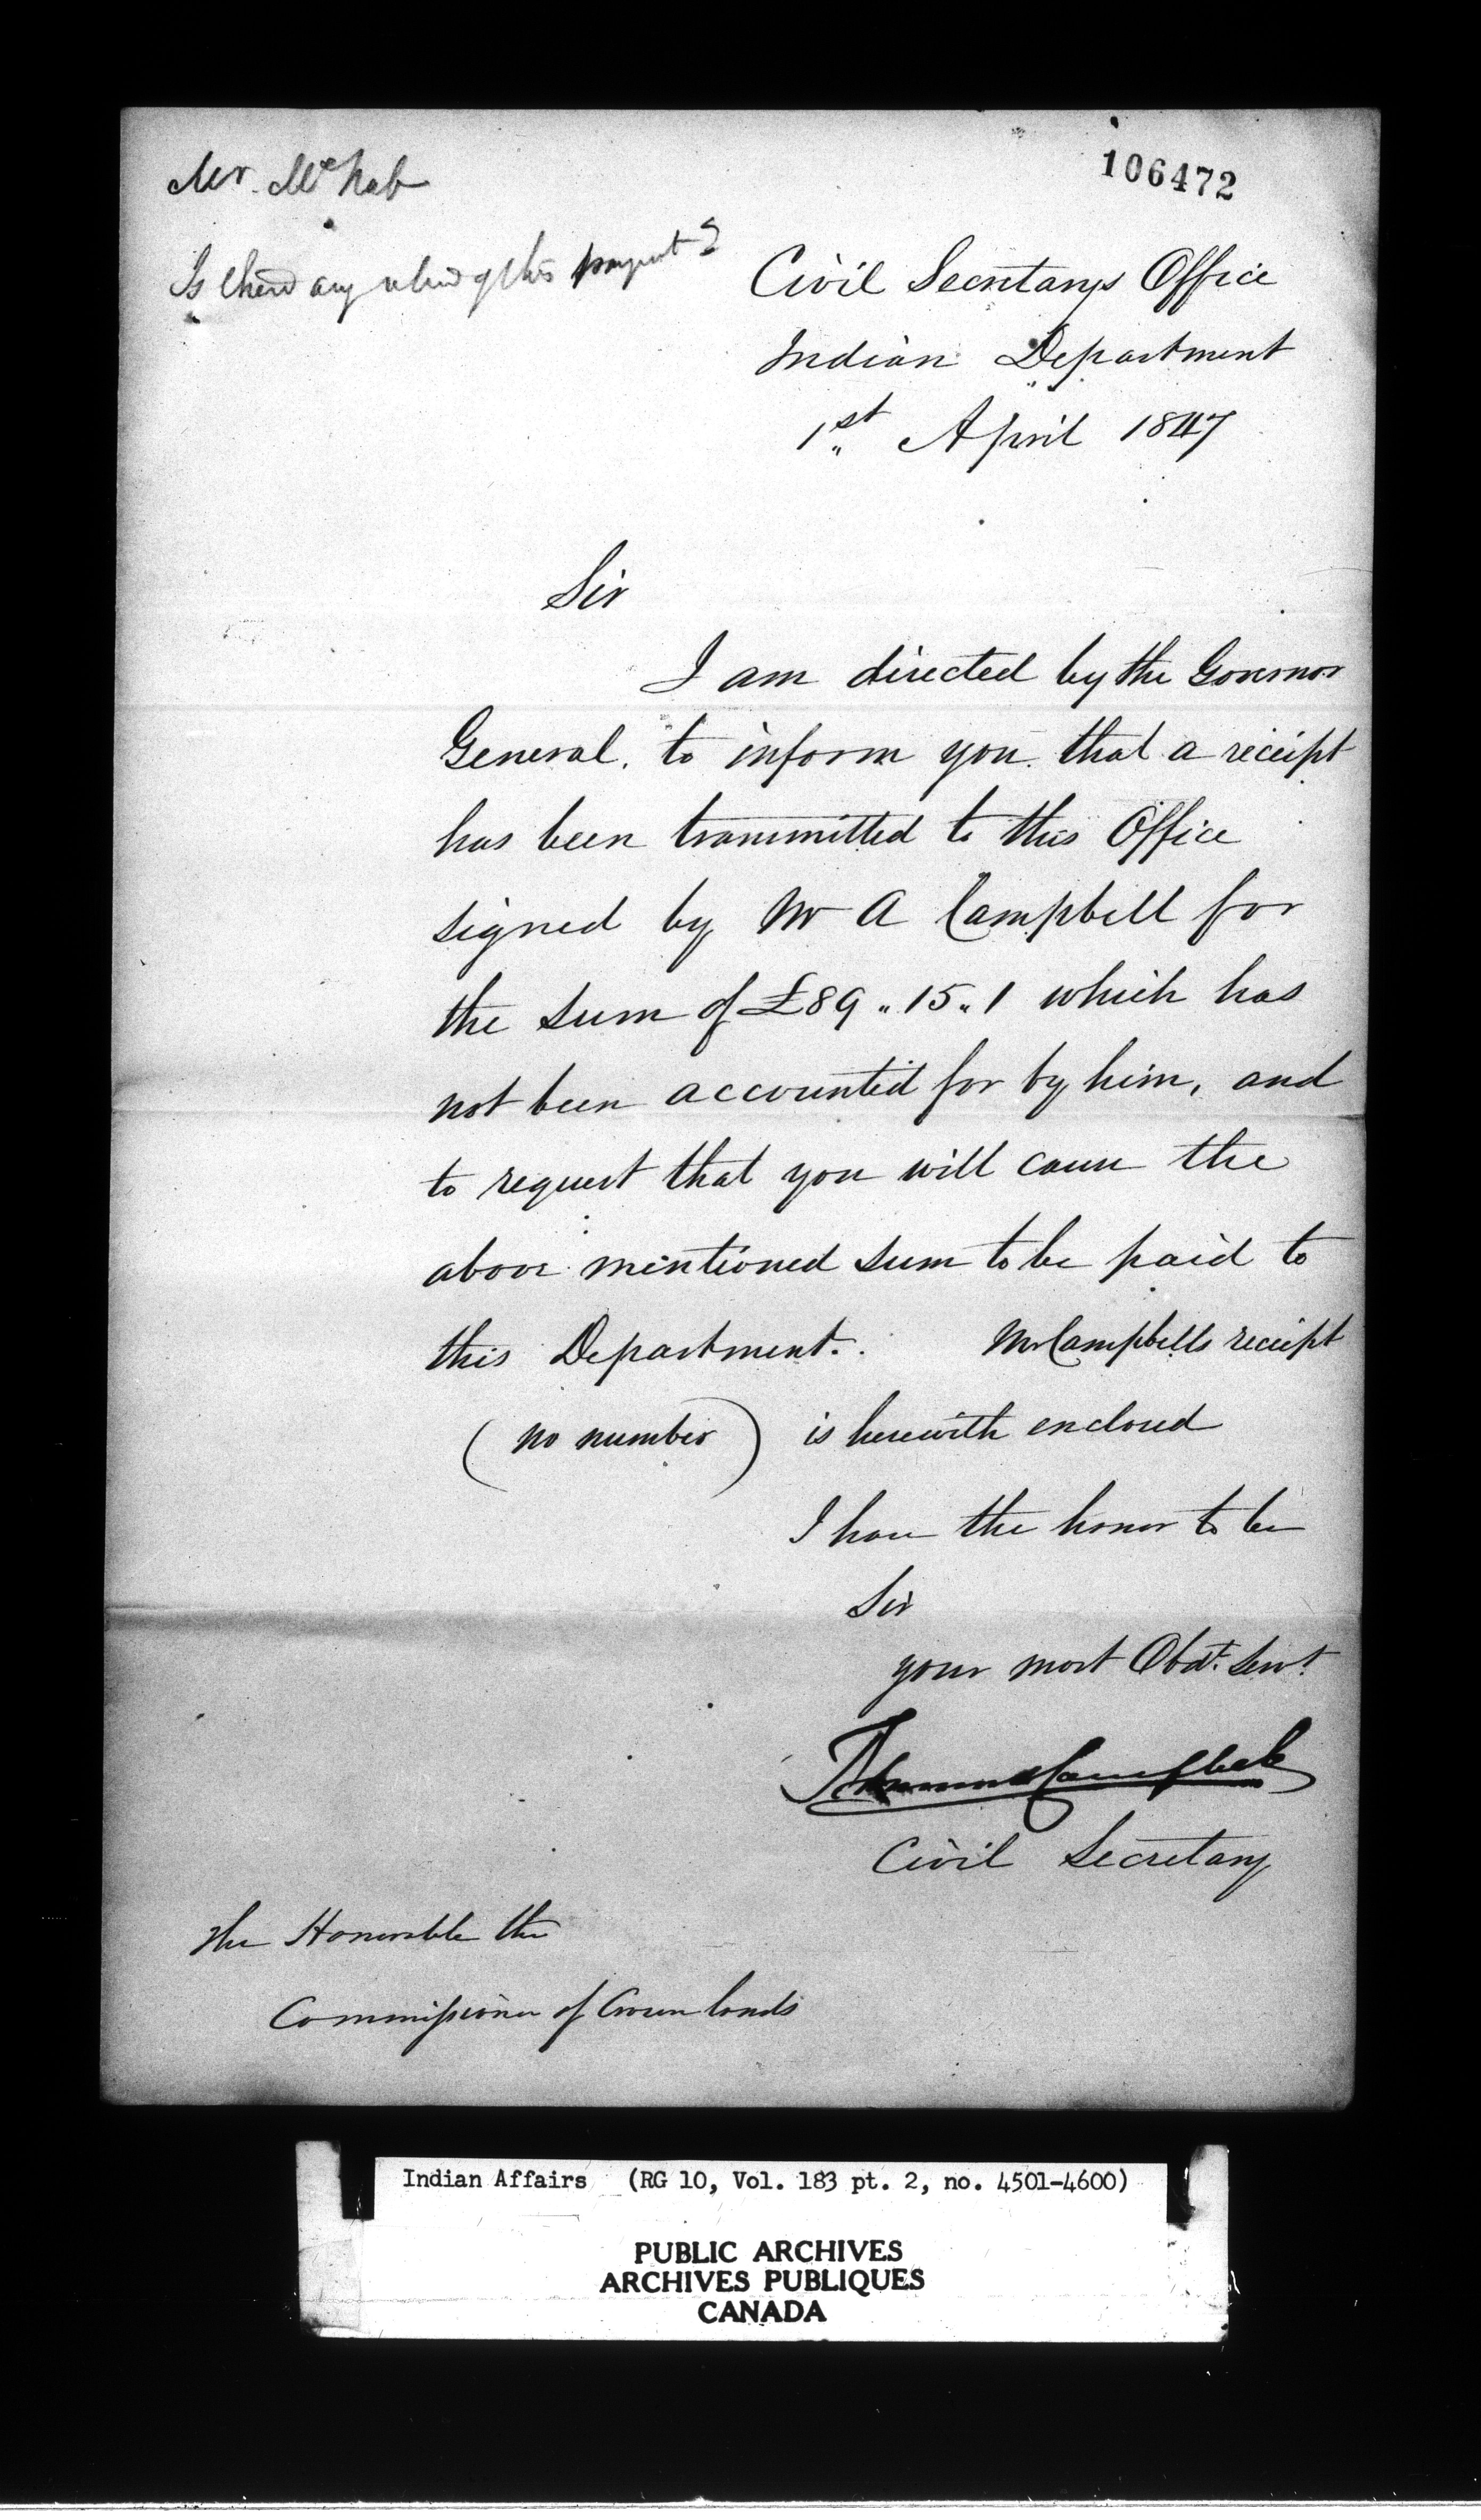 106472
Mr. McNab
Is there any of this payment?
Civil Secretarys Office
Indian Department
1st April 1847
Sir
I am directed by the Governor
General, to inform you that a receipt
has been transmitted to this Office
signed by Mr A Campbell for
the sum of £89 „ 15 „ 1 which has
not been accounted for by him, and
to request that you will cause the
above mentioned sum to be paid to
this Department. Mr Campbells receipt
(no number) is herewith enclosed
I have the honor to be
Sir
your most Obdt. Servt.
Campbell
Civil Secretary
The Honorable the
Commissioner of Crown Lands
Indian Affairs (RG 10, Vol. 183 pt. 2, no. 4501-4600)
PUBLIC ARCHIVES
ARCHIVES PUBLIQUES
CANADA